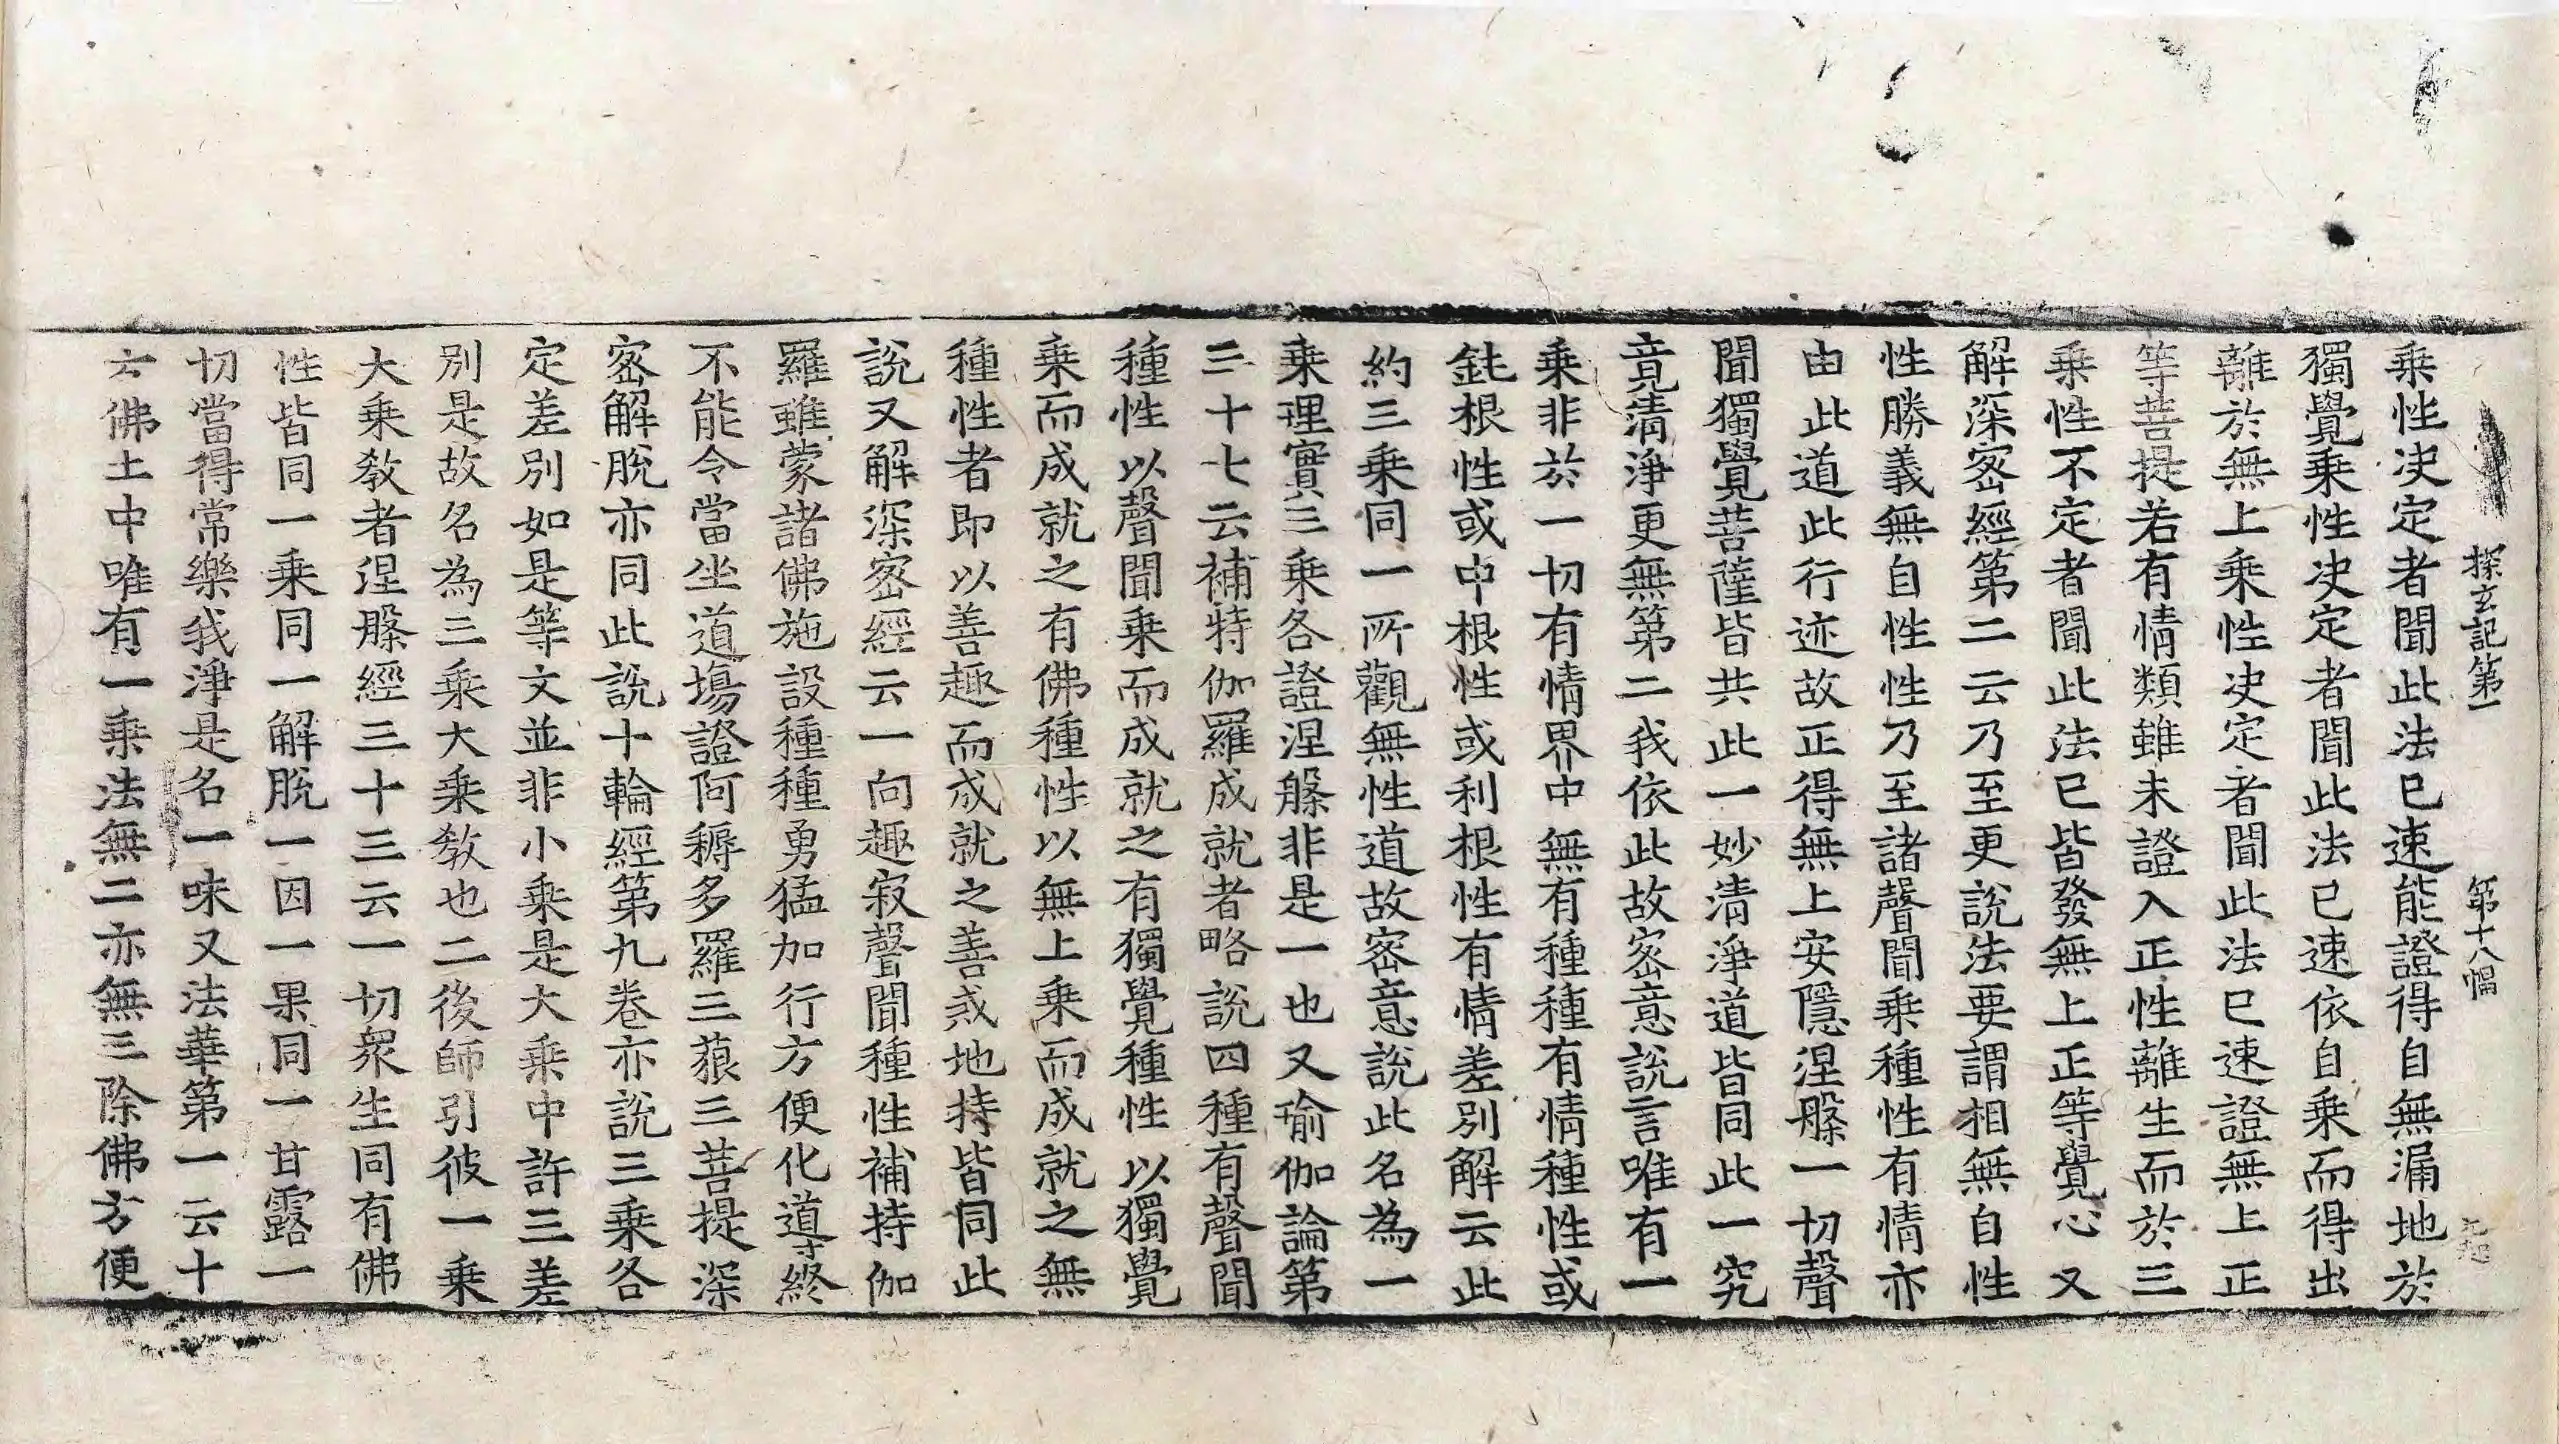 探玄記第一　第十八幅
乗性决定者聞此法已速能證得自無漏地於
獨覺乗性决定者聞此法已速依自乗而得出
離於無上乗性决定者聞此法已速證無上正
等菩提若有情類雖未證入正性離生而於三
乗性不定者聞此法已皆發無上正等覺心又
解深宻經第二云乃至更說法要謂相無自性
性勝義無自性性乃至諸聲聞乗種性有情亦
由此道此行迹故正得無上安隱涅槃一切聲
聞獨覺菩薩皆共此一妙清淨道皆同此一究
竟清淨更無第二我依此故宻意說言唯有一
乗非於一切有情界中無有種種有情種性或
鈍根性或中根性或利根性有情差別解云此
約三乗同一所觀無性道故宻意說此名為一
乗理實三乗各證涅槃非是一也又瑜伽論第
二十七云補特伽羅成就者略說四種有聲聞
種性以聲聞乗而成就之有獨覺種性以獨覺
乗而成就之有佛種性以無上乗而成就之無
種性者即以善趣而成就之善戒地持皆同此
說又解深宻經云一向趣寂聲聞種性補特伽
羅雖蒙諸佛施設種種勇猛加行方便化導終
不能令當坐道場證阿耨多羅三藐三菩提深
宻解脫亦同此說十輪經第九卷亦說三乗各
定差別如是等文並非小乗是大乗中許三差
別是故名為三乗大乗教也二後師引彼一乗
大乗教者涅槃經三十三云一切衆生同有佛
性皆同一乗同一解脫一因一果同一甘露一
切當得常樂我淨是名一味又法華第一云十
方佛土中唯有一乗法無二亦無三除佛方便